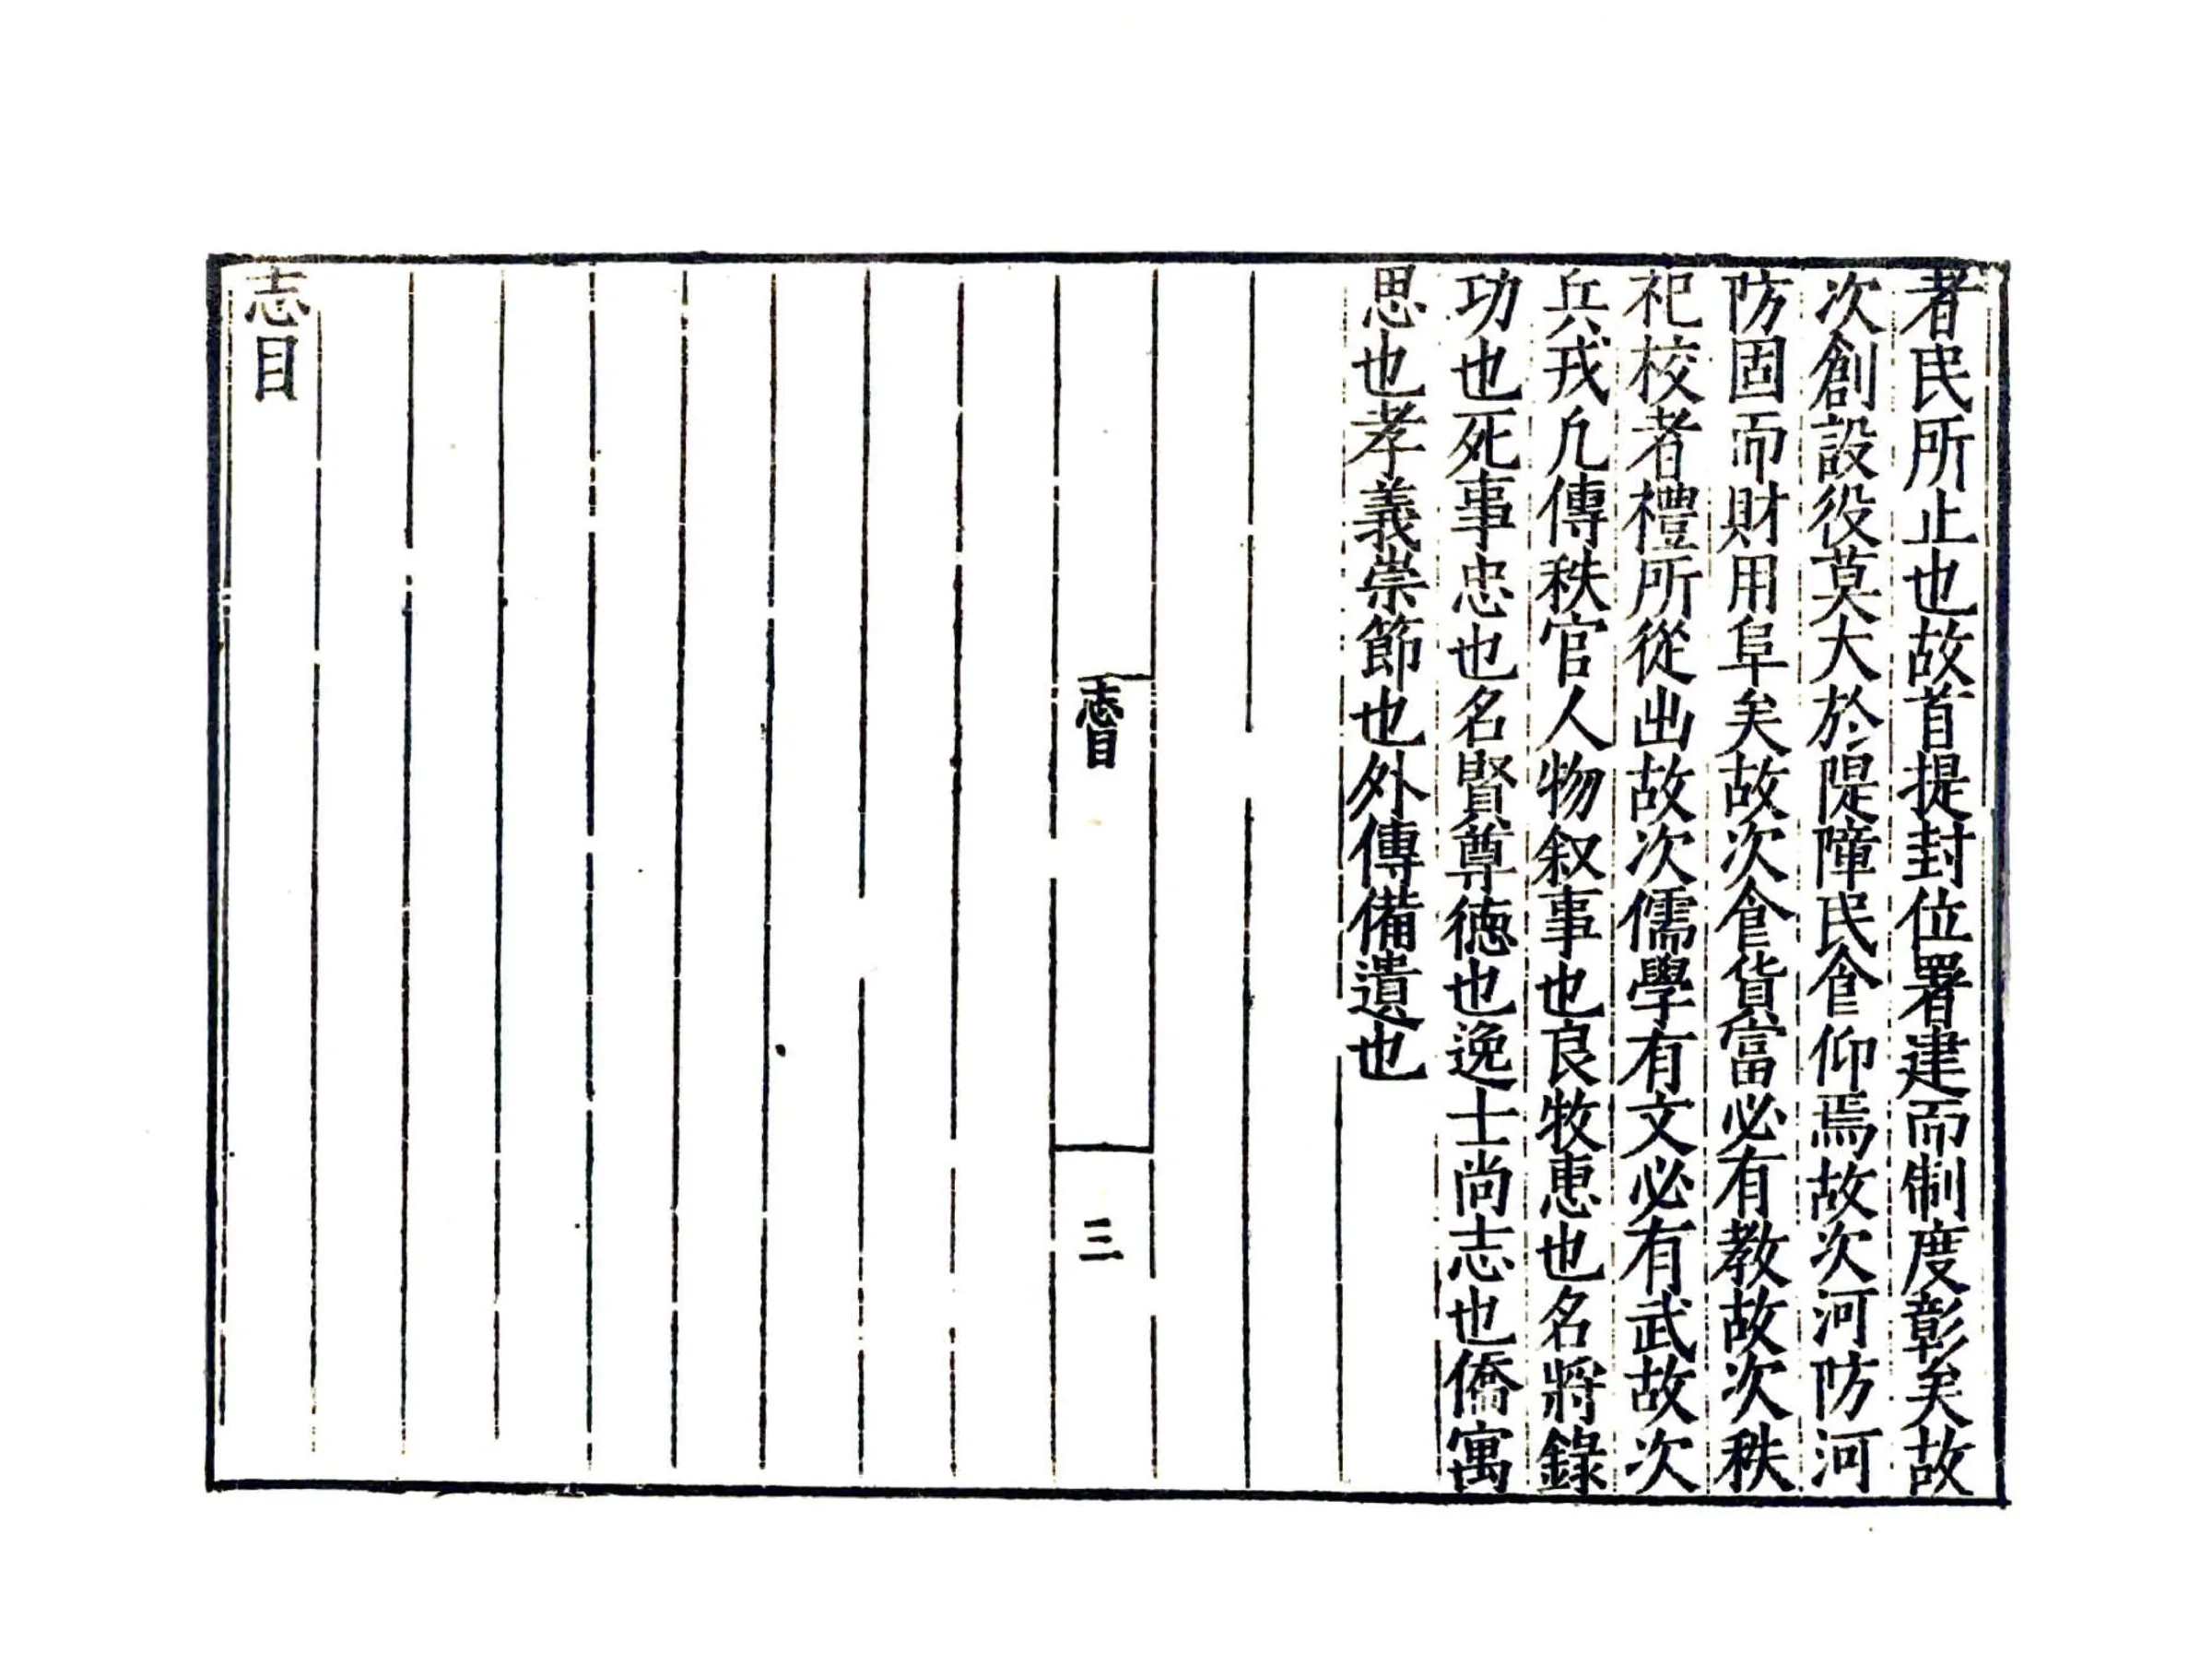 者民所止也故首提封位署建而制度彰矣故
次創設役莫大於隄障民食仰焉故次河防河
防固而財用阜矣故次食貨富必有教故次秩
祀校者禮所從出故次儒學有文必有武故次
兵戎凡傳秩官人物叙事也良牧惠也名將錄
功也死事忠也名賢尊德也逸士尚志也僑寓
思也孝義崇節也外傳備遺也
志目
三
志目